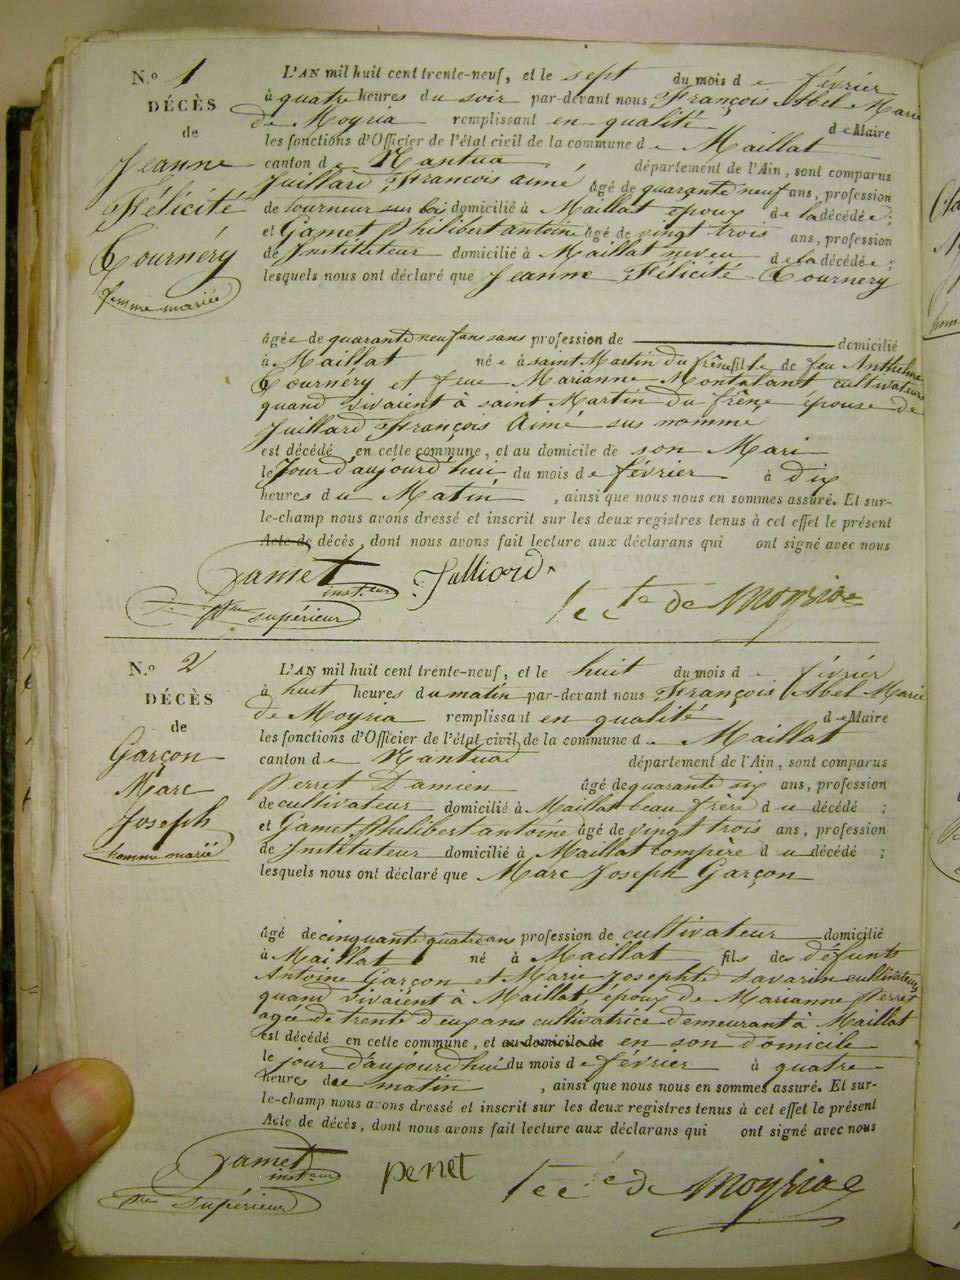 N.º 1
DÉCÈS
de
Jeanne
Félicité
Tournéry
femme mariée
L'AN mil huit cent trente-neuf, et le sept du mois de février
à quatre heures du soir par-devant nous François Abel Marie
de Moyria remplissant en qualité de Maire
les fonctions d'Officier de l'état civil de la commune de Maillat
canton de Nantua département de l'Ain, sont comparus
Juillard François aimé âgé de quarante neuf ans, profession
de tourneur sur bois domicilié à Maillat époux de la décédée ;
et Gamet Philibert antoine âgé de vingt trois ans, profession
de Instituteur domicilié à Maillat neveu de la décédée ;
lesquels nous ont déclaré que Jeanne Félicité Tournéry
âgée de quarante neuf ans sans profession de domicilié
à Maillat née à saint Martin du frêne fille de feu Anthelme
Tournéry et feue Marianne Montalant cultivateurs
quand vivaient à saint Martin du frêne épouse de
Juillard François Aimé sus nommé
est décédé en cette commune, et au domicile de son Mari
le Jour d'aujourd'hui du mois de février à dix
heures du Matin, ainsi que nous nous en sommes assuré. Et sur-
le-champ nous avons dressé et inscrit sur les deux registres tenus à cet effet le présent
Acte de décès, dont nous avons fait lecture aux déclarans qui ont signé avec nous
Gamet Julliard
inst.eur
supérieur
de Moyria
N.º 2
DÉCÈS
de
Garçon
Marc
Joseph
homme marié
L'AN mil huit cent trente-neuf, et le huit du mois de février
à huit heures du matin par-devant nous François Abel Marie
de Moyria remplissant en qualité de Maire
les fonctions d'Officier de l'état civil de la commune de Maillat
canton de Nantua département de l'Ain, sont comparus
Perret Damien âgé de quarante six ans, profession
de cultivateur domicilié à Maillat beau frère du décédé ;
et Gamet Philibert antoine âgé de vingt trois ans, profession
de Instituteur domicilié à Maillat compère du décédé ;
lesquels nous ont déclaré que Marc Joseph Garçon
âgé de cinquante quatre ans profession de cultivateur domicilié
à Maillat né à Maillat fils des défunts
Antoine Garçon et Marie Josephte Savarin cultivateurs
quand vivaient à Maillat, époux de Marianne Perret
agée de trente deux ans cultivatrice demeurant à Maillat
est décédé en cette commune, et au domicile de en son domicile
le jour d'aujourd'hui du mois de février à quatre
heures de matin, ainsi que nous nous en sommes assuré. Et sur-
le-champ nous avons dressé et inscrit sur les deux registres tenus à cet effet le présent
Acte de décès, dont nous avons fait lecture aux déclarans qui ont signé avec nous
Gamet peret
inst.eur
supérieur
de Moyria